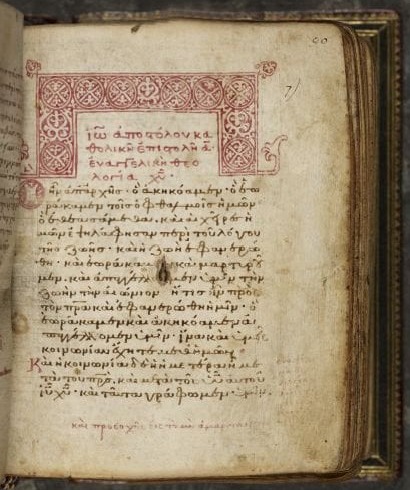 90
ἰω ἀποστόλου κα
θολικὴ ἐπιστολὴ α
εὐαγγελικὴ θεο
λογία χυ
ὃ ἦν ἀπ ἀρχῆς · ὃ ἀκηκόαμεν · ὃ ἑω
ράκαμεν τοῖς ὀφθαλμοῖς ἡμῶν
ὃ ἐθεασάμεθα · καὶ αἱ χεῖρες ἡ
μῶν ἐψηλάφησαν περὶ τοῦ λόγου
τῆς ζωῆς · καὶ ἡ ζωὴ ἐφανερώ
θη · καὶ ἑωράκαμεν καὶ μαρτυροῦ
μεν · καὶ ἀπαγγέλλομεν ὑμῖν τὴν
ζωὴν τὴν αἰώνιον · ἥτις ἦν πρὸς
τὸν πρα καὶ ἐφανερώθη ἡμῖν · ὃ
ἑωράκαμεν καὶ ἀκηκόαμεν
ἀπαγγέλλομεν ὑμῖν · ἵνα καὶ ὑμεῖς
κοινωνίαν ἔχητε μεθ ἡμῶν
Καὶ ἡ κοινωνία δὲ ἡ ἡμετέρα ἡ με
τὰ τοῦ πρς · καὶ μετὰ τοῦ υυ αὐτοῦ
ιυ χυ · καὶ ταῦτα γράφομεν ὑμῖν